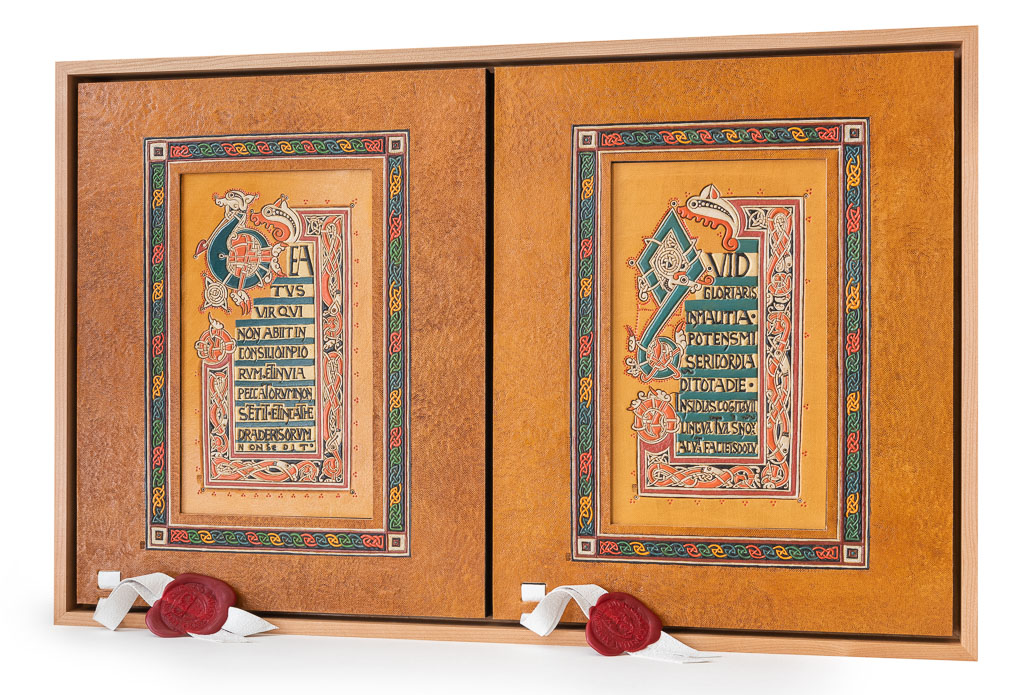 BEA
TVS
VIR QVI
NON ABIIT IN
CONSILIO INPIO
RVM ET IN VIA
PECCATORVM NON
STETIT ET IN CATHE
DRA DERISORVM
NON SEDIT
QVID
GLORIARIS
IN MALITIA·
POTENS MI
SERICORDIA
DI TOTA DIE·
INSIDIAS COGITAVI
LINGVA TVA SNO